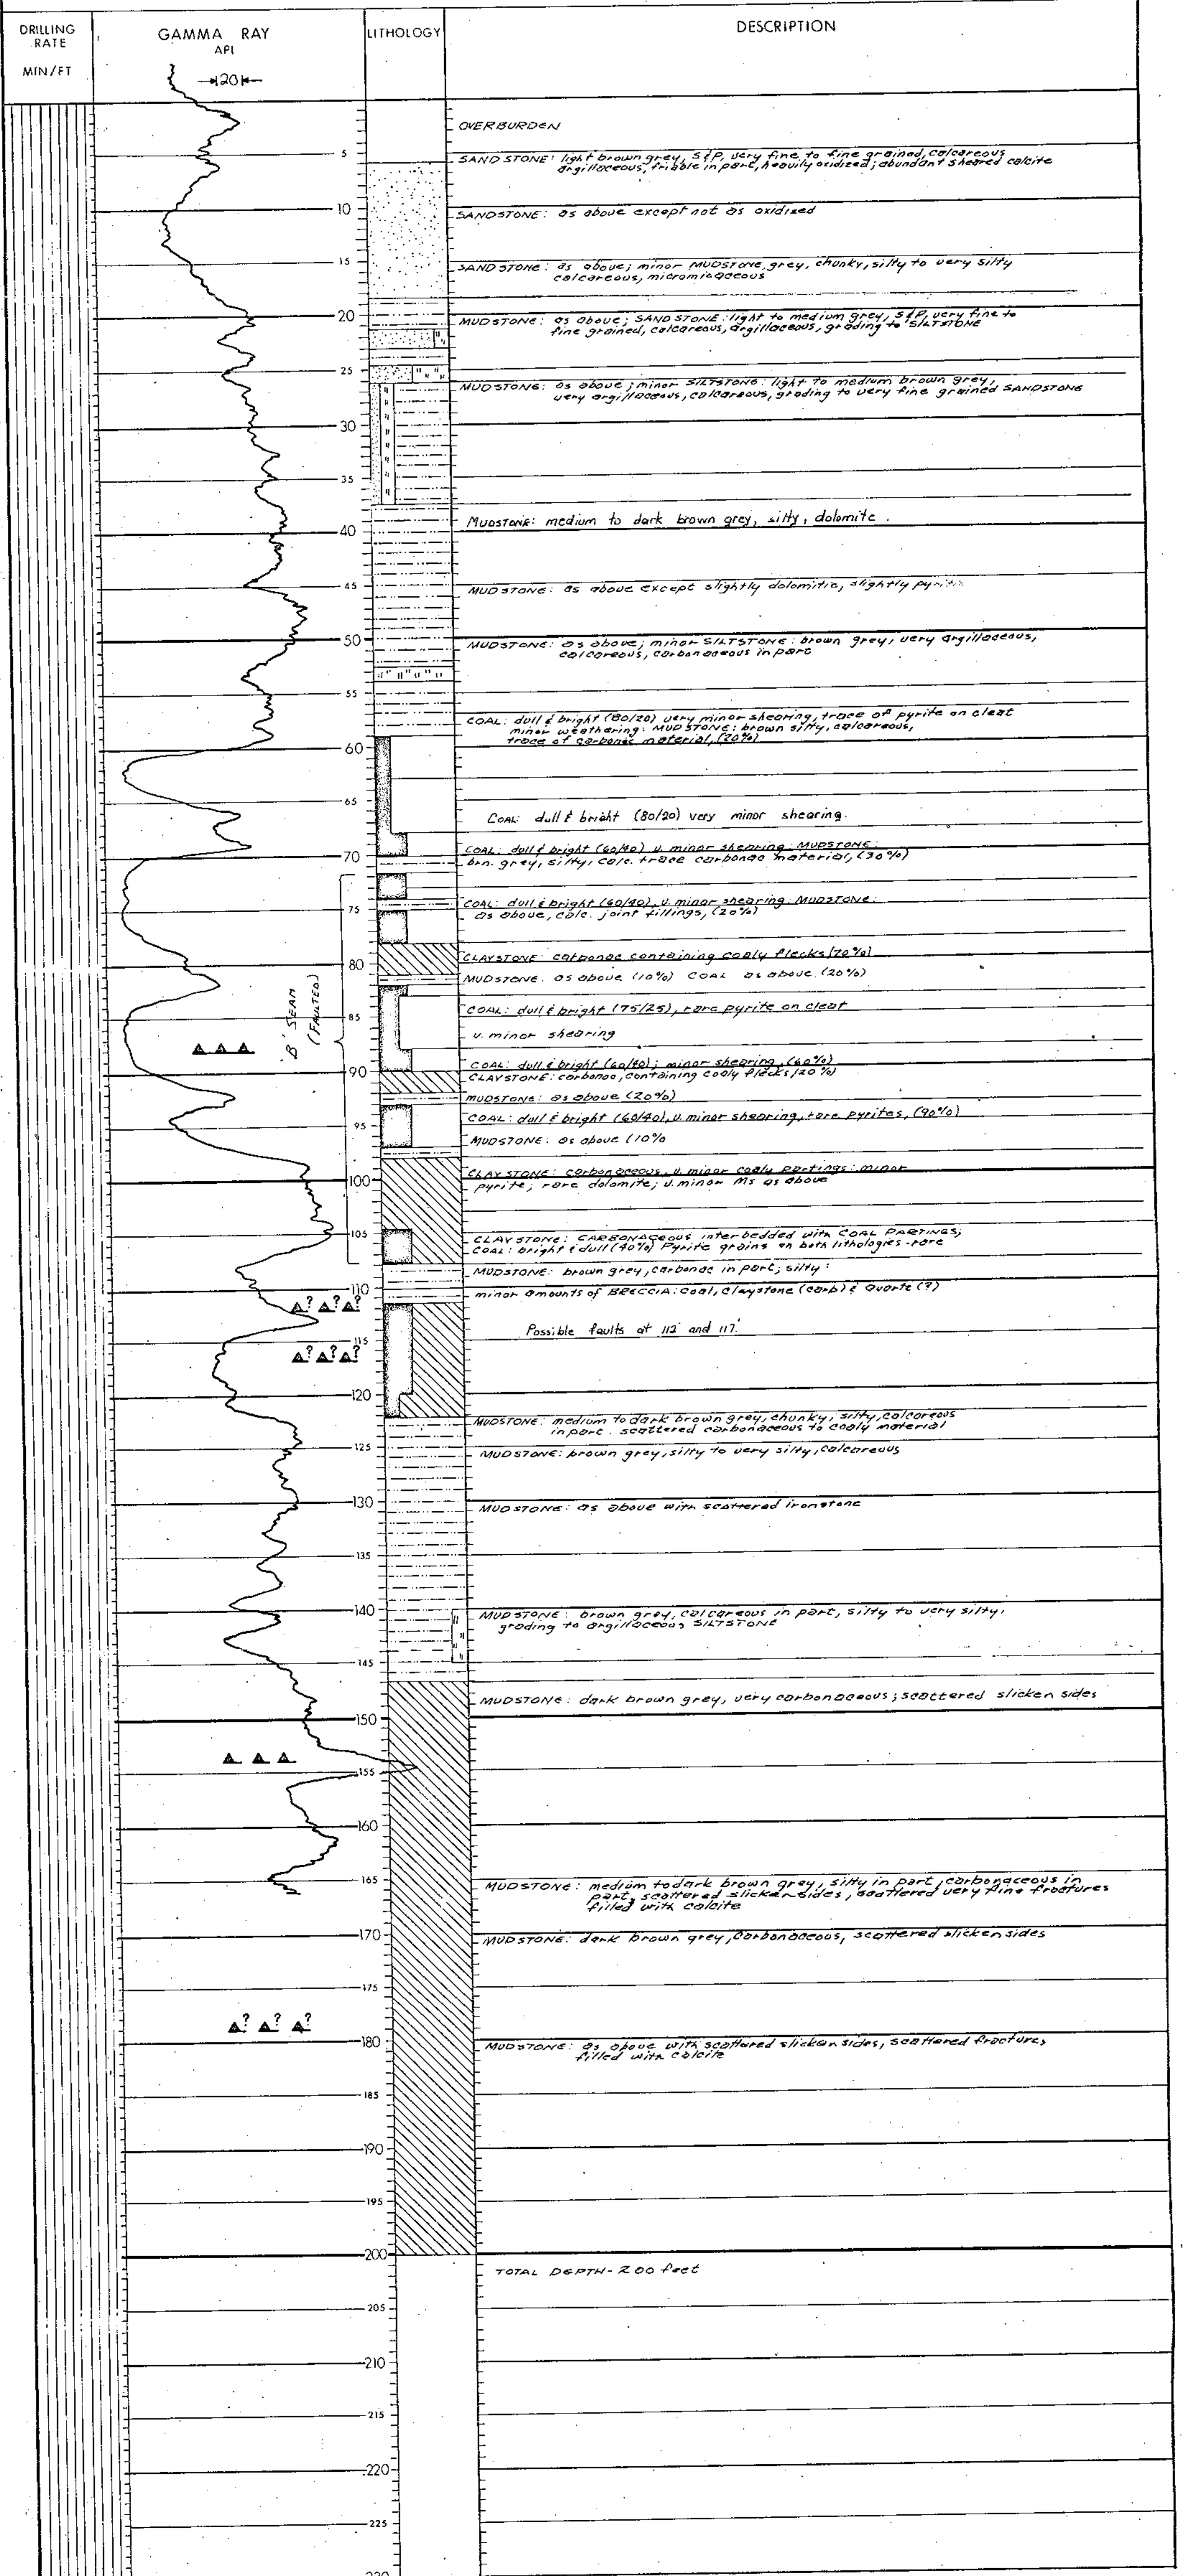 DRILLING
RATE
MIN/FT
GAMMA RAY
API
20
LITHOLOGY
DESCRIPTION
OVERBURDEN
5
SANDSTONE: light brown grey, S&P, very fine to fine grained, calcareous
argillaceous, friable in part, heavily oxidized; abundant sheared calcite
10
SANDSTONE: as above except not as oxidized
15
SANDSTONE: as above; minor MUDSTONE, grey, chunky, silty to very silty
calcareous, micromicaceous
20
MUDSTONE: as above; SANDSTONE: light to medium grey, S&P, very fine to
fine grained, calcareous, argillaceous, grading to SILTSTONE
25
MUDSTONE: as above; minor SILTSTONE: light to medium brown grey,
very argillaceous, calcareous, grading to very fine grained SANDSTONE
30
35
MUDSTONE: medium to dark brown grey, silty, dolomite.
40
45
MUDSTONE: as above except slightly dolomitic, slightly
50
MUDSTONE: as above; minor SILTSTONE: brown grey, very argillaceous,
calcareous, carbonaceous in part
55
COAL: dull & bright (80/20) very minor shearing, trace of pyrite on cleat
minor weathering: MUDSTONE: brown silty, calcareous,
trace of carbonac material, (20%)
60
65
COAL: dull & bright (80/20) very minor shearing.
COAL: dull & bright (60/40) v. minor shearing: MUDSTONE:
70
brn. grey, silty, calc. trace carbonac material, (30%)
COAL: dull & bright (60/40), v. minor shearing. MUDSTONE:
75
as above, calc. joint fillings, (20%)
CLAYSTONE: carbonac containing coaly flecks (70%)
80
MUDSTONE: as above (10%) COAL as above (20%)
'B' SEAM
(FAULTED)
COAL: dull & bright (75/25), rare pyrite on cleat
85
v. minor shearing
COAL: dull & bright (60/40); minor shearing, (60%)
90
CLAYSTONE: carbonac, containing coaly flecks (20%)
MUDSTONE: as above (20%)
COAL: dull & bright (60/40), v. minor shearing, rare pyrites, (90%)
95
MUDSTONE: as above (10%
CLAYSTONE: carbonaceous, v. minor coaly partings: minor
100
pyrite; rare dolomite; v. minor MS as above
105
CLAYSTONE: CARBONACEOUS interbedded with COAL PARTINGS;
COAL: bright & dull (40%) Pyrite grains on both lithologies - rare
MUDSTONE: brown grey, carbonac in part; silty:
110
minor amounts of BRECCIA: Coal, Claystone (carb) & Quartz (?)
? ? ?
Possible faults at 112' and 117'.
115
? ? ?
120
MUDSTONE: medium to dark brown grey, chunky, silty, calcareous
in part. scattered carbonaceous to coaly material
125
MUDSTONE: brown grey, silty to very silty, calcareous
130
MUDSTONE: as above with scattered ironstone
135
140
MUDSTONE: brown grey, calcareous in part, silty to very silty,
grading to argillaceous SILTSTONE
145
MUDSTONE: dark brown grey, very carbonaceous; scattered slicken sides
150
155
160
165
MUDSTONE: medium to dark brown grey, silty in part, carbonaceous in
part, scattered slicken sides, scattered very fine fractures
filled with calcite
170
MUDSTONE: dark brown grey, Carbonaceous, scattered slicken sides
175
? ? ?
180
MUDSTONE: as above with scattered slicken sides, scattered fractures
filled with calcite
185
190
195
200
TOTAL DEPTH - 200 feet
205
210
215
220
225